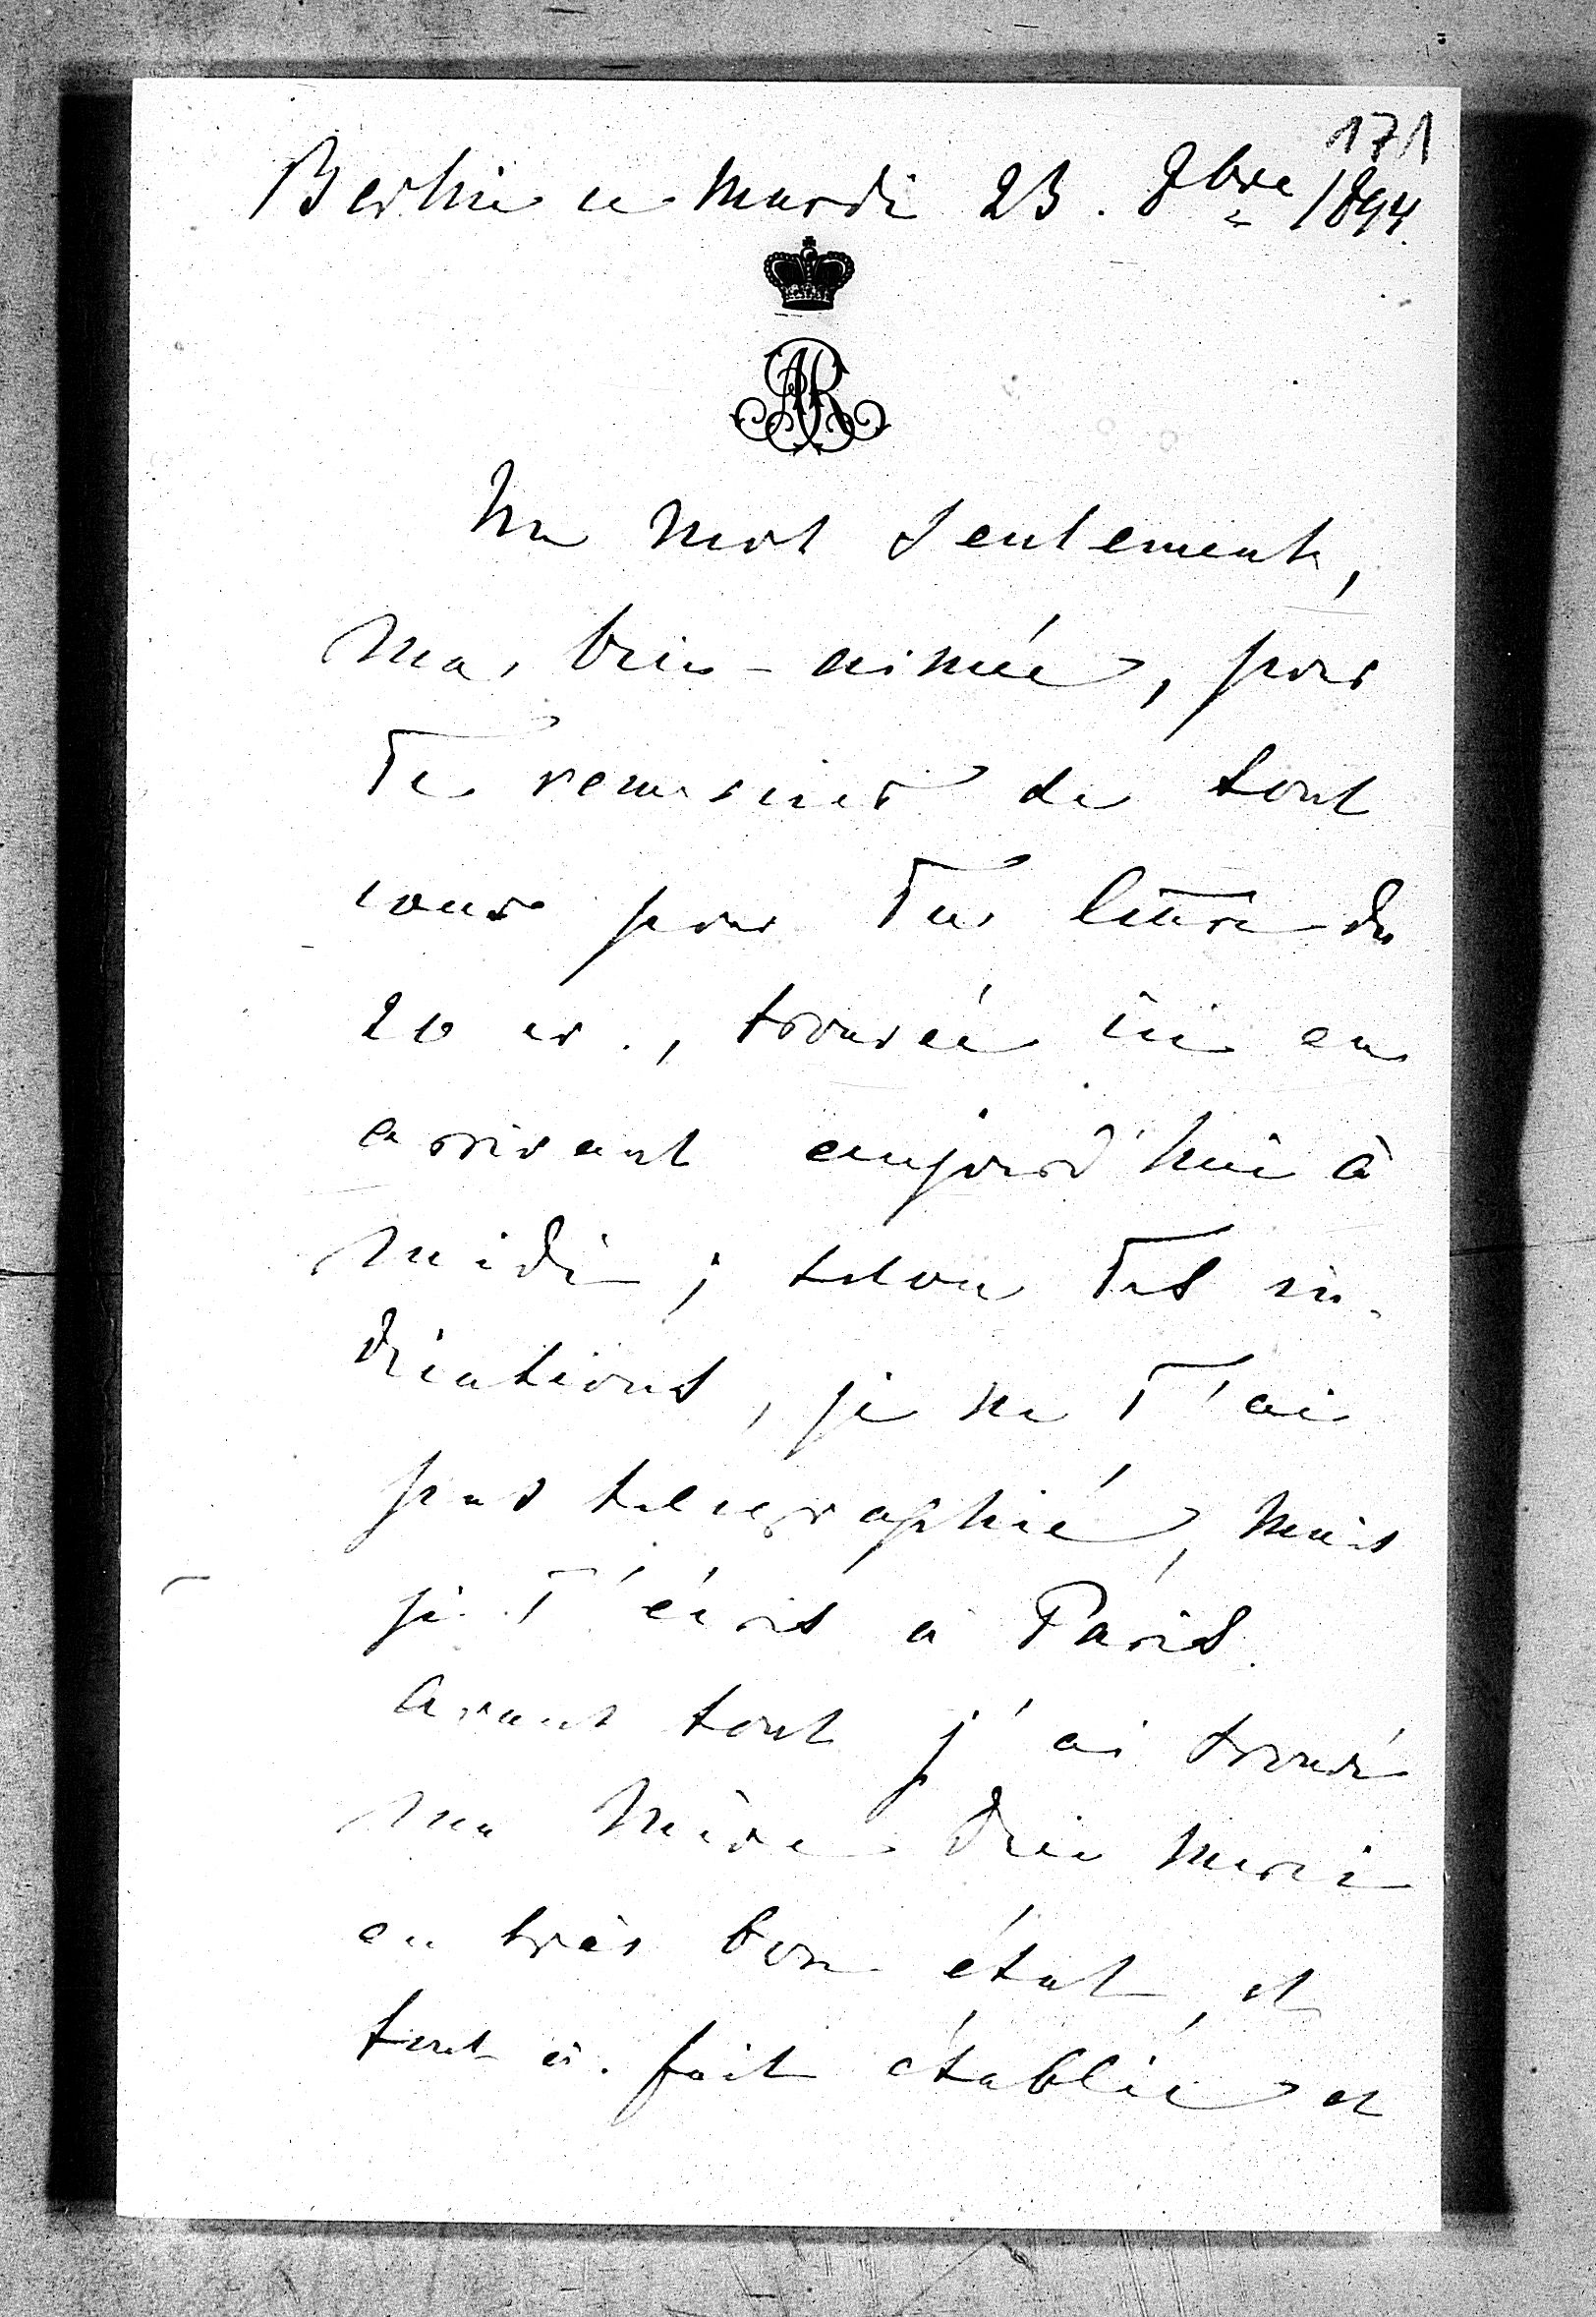 171
Berlin ce Mardi 23. 8bre 1894.
AR
Un mot seulement,
ma bien-aimée, pour
Te remercier de tout
cœur pour Ta lettre du
20 cr., trouvée ici en
arrivant aujourd'hui à
midi; selon Tes in-
dications, je ne T'ai
pas télégraphié, mais
je T'écris à Paris.
Avant tout j'ai trouvé
ma Mère Dieu merci
en très bon état, et
tout à fait établie et